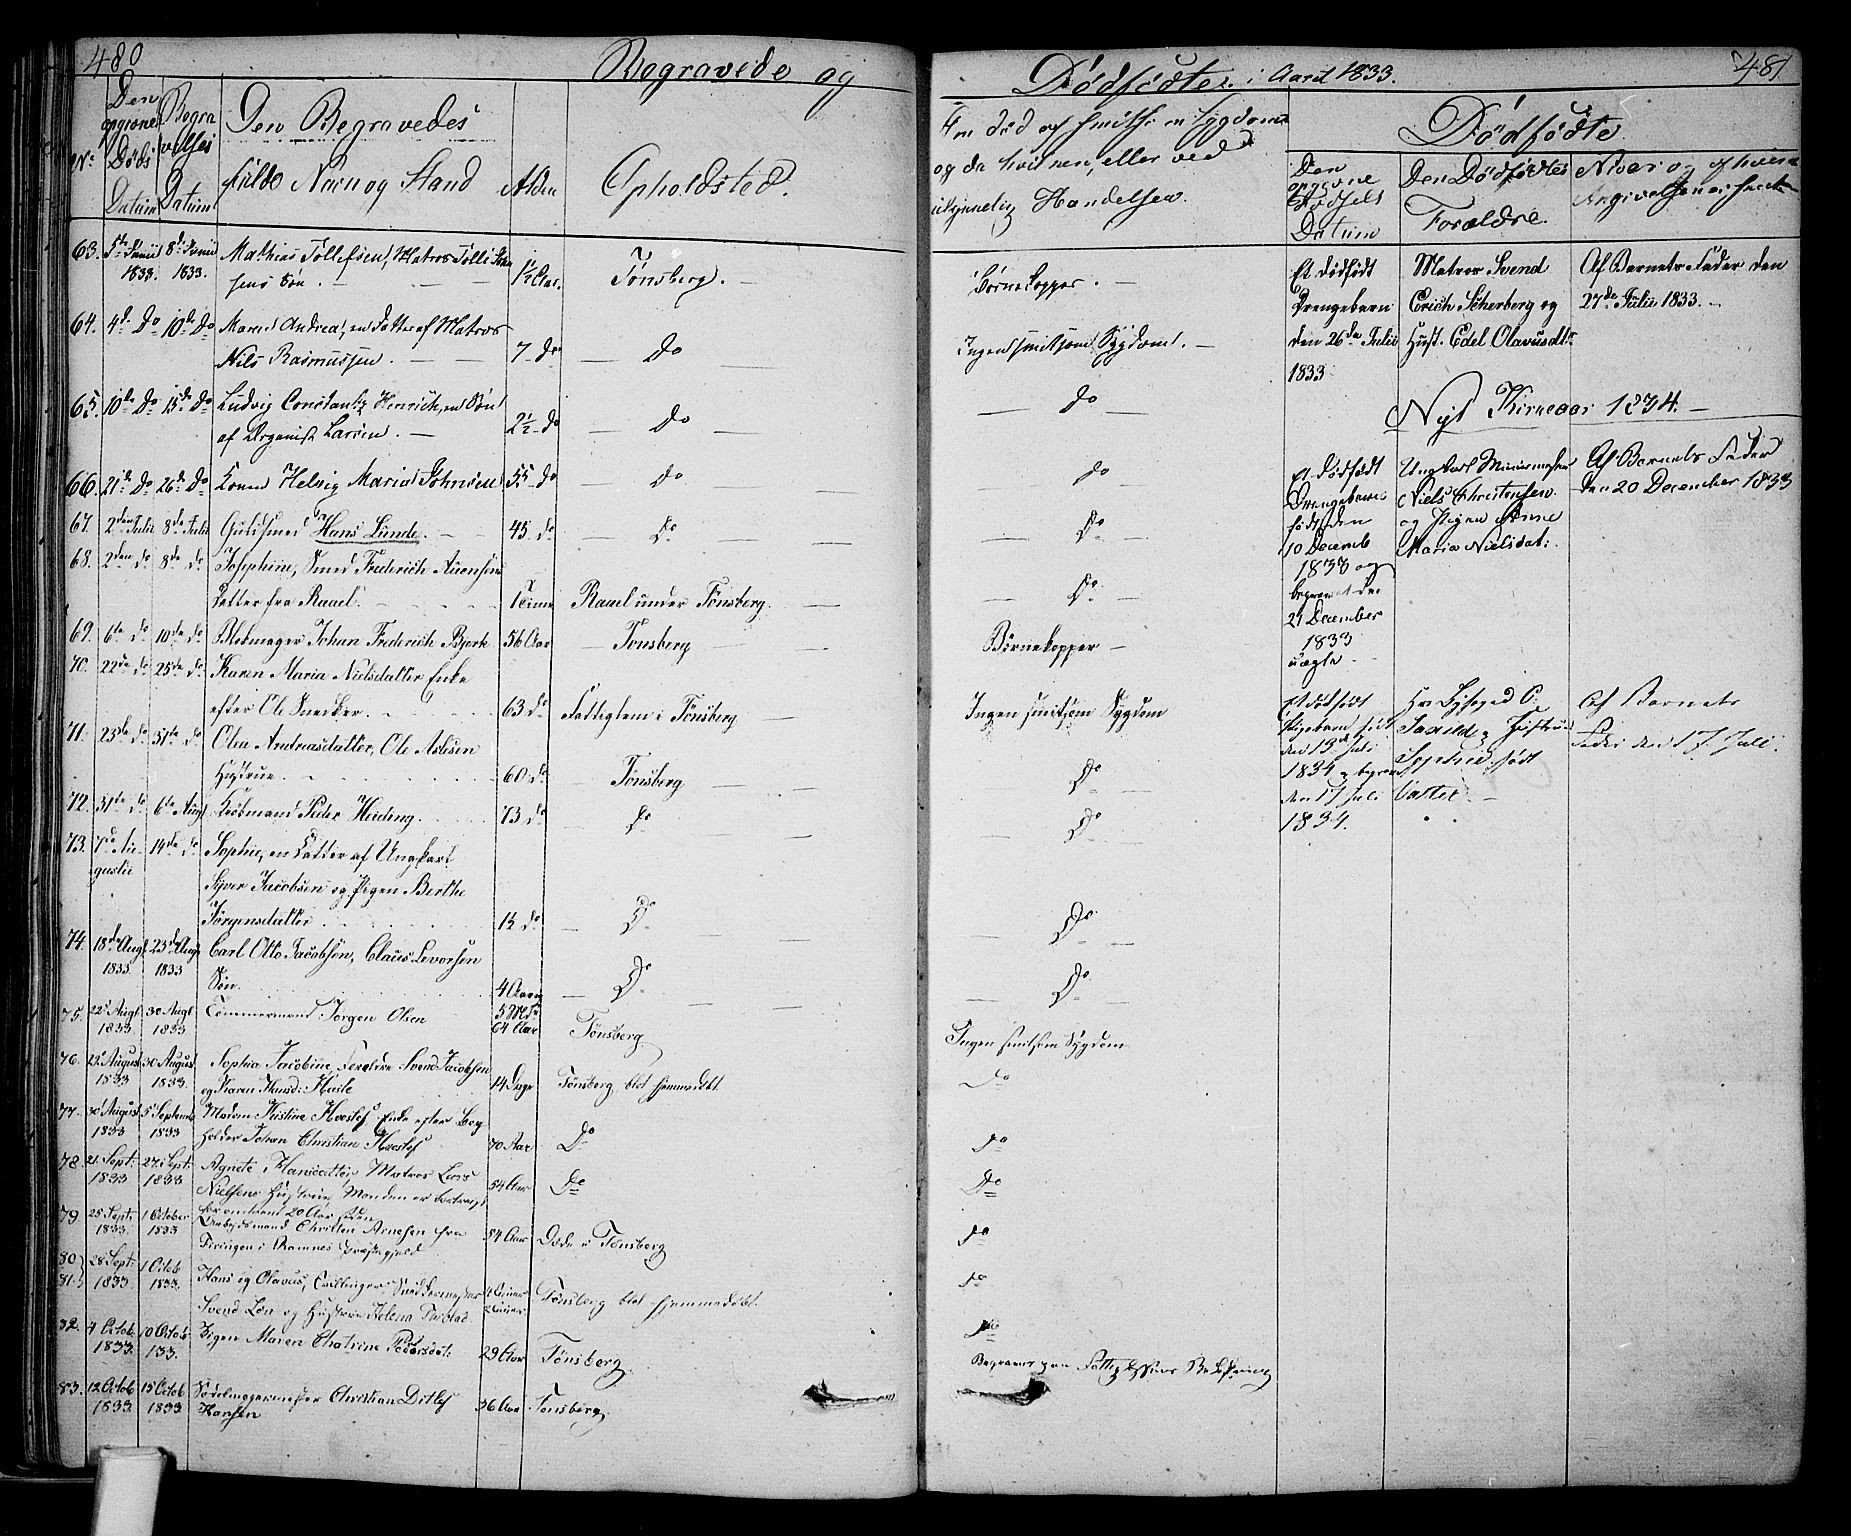 480
Begravede og
Den
opgivne
Døds
Datum
Begra
velses
Datum
No
Den Begravedes
fulde Navn og Stand
Alder
Opholdsted.
63. 5te Junii 8de Junii Mathias Tollefsen, Matros Tolli
1833. 1833. sens Søn. — 1½ Aar. Tønsberg. —
64. 4de Do 10de Do Maren Andrea, en Datter af Matros
Nils Rasmussen. — 7 do — Do
65. 10de Do 15de Do Ludvig Constantz Henrich, en Søn
af Organist Larsen. — 2½ do — Do —
66. 21de Do 26de Do Konen Helvig Maria Johnsen 55 do — Do —
67. 2den Julii 8de Julii Guldsmed Hans Lunde. — 45 do — Do —
68. 2den do 8de do Josephine, Smed Friderich
Datter fra Raael. 1 Time Raael under Tønsberg. —
69. 6te do 10de do Blokmager Johan Friderich Bjerk 56 Aar — Tønsberg —
70. 22de do 25de do Karen Maria Nielsdatter Enke
efter Ole Snedker. 63 do Fattiglem i Tønsberg —
71. 23de do 31te do Olea Andreasdatter, Ole Aslesen
Hustrue. 60 do — Tønsberg —
72. 31te do 6te Augt Kiøbmand Peder Heiding. 73 do — Do
73. 7de Au- 14de do Sophie, en Datter af Ungkarl
gustii
Syver Jacobsen og Pigen Berthe
Jørgensdatter. 1½ do — Do
74. 18de Augt 23de Augt Carl Otto Jacobsen, Claus Levorsen
1833 1833 Søn. 4 Aar — Do
5 Md
75. 22 Augt 30 Augt Tømmermand Jørgen Olsen 64 Aar Tønsberg.
1833 1833
76. 23 August 30 August Sophia Jacobine, Forældre Svend Jacobsen
1833 1833. og Karen 14 Dage Tønsberg, blot hjemmedøbt.
77. 30 August 5 Septembr Madam Kistine Enke efter Bog
1833 1833 holder Johan Christian 70 Aar Do
78. 21. Sept: 27. Sept: Agnete Hansdatter, Matros Lars
1833 1833 Nielsens Hustrue, Manden er bortreist
for omtrent 20 Aar siden
54 Aar Do
79 25 Sept: 1 October Arbeidsmand Christen Arnesen fra
1833. 1833 i Ramnes Præstegjeld 54 Aar Døde i Tønsberg
80 28 Sept: 1 Octob Hans og Olavus, Tvillinger, Snedkermester
81. 1833 1833. Svend og Hustrue Helena Tønsberg blot hjemmedøbt.
82. 4 Octob 10 Octob Pigen Maren Chatrine Pedersdat: 29 Aar Tønsberg.
1833. 133.
83. 12 Octob 15 Octob Sadelmagermester Christian Ditlef
1833 1833 Hansen 36 Aar Tønsberg.
481
Dødfødte i Aaret 1833.
Om død af smitsom Sygdom
og da hvilken, eller ved
ulykkelig Hændelsen.
Børnekopper. —
Ingen smitsom Sygdom. —
— do —
do
— Do —
— Do —
Børnekopper —
Ingen smitsom Sygdom
— Do —
— Do —
— Do —
— Do —
Ingen smitsom Sygdom
Do
Do
Do
Do
Do
Do
Begraves paa
Dødfødte
Den
opgivne
Fødsels
Datum
Den Dødfødtes
Forældre.
Naar og af hvem
Angivelsen er skeet
Et dødfødt
Drengebarn
den 26de Julii
1833
Matros Svend
Erich Scherberg og
Hust. Edel Olavusdtr
Af Barnets Fader den
27de Julii 1833. —
Nyt Kirneaar 1834. —
Et dødfødt
Drengebarn
født den
10 Decemb
1833 og
begravet den
21 December
1833
uægte. —
Ungkarl
Niels Christensen
og Pigen Anne
Maria Nielsdat:
Af Barnets Fader
den 20 December 1833
Et dødfødt
Pigebarn født
den 13de Juli
1834 og begravet
den 17 Juli
1834.
Hr O.
og Hustrue
Sophie født
Af Barnets
Fader den 17 Juli.